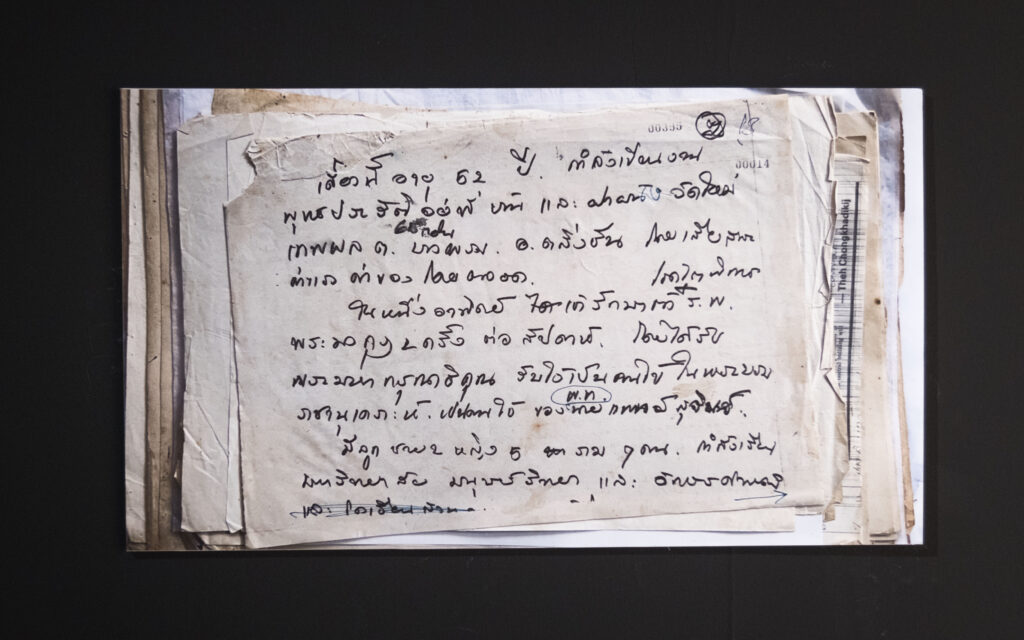 00355
00014
เดี๋ยวนี้ อายุ 52 ปี. กำลังเขียนงาน
พุทธประวัติ อยู่ที่ และ ฝาผนัง วัดใหม่
เทพพล ต. อ. ตลิ่งชัน โดย
ค่าแรง ค่าของ โดยตลอด. โรคไตพิการ
ในหนึ่งอาทิตย์ รักษาตัวที่ ร.พ.
พระมงกุฎ ๒ ครั้ง ต่อ สัปดาห์. โดยได้รับ
พระมหากรุณาธิคุณ รับไว้เป็นคนไข้ ในพระบรม
ราชานุเคราะห์. เป็นคนไข้ ของ พ.ท. นายแพทย์
มีลูก ชาย ๒ หญิง ๕ รวม ๗ คน. กำลังเรียน
มหาวิทยาลัย และ
และ
Theh Chongkhadikij